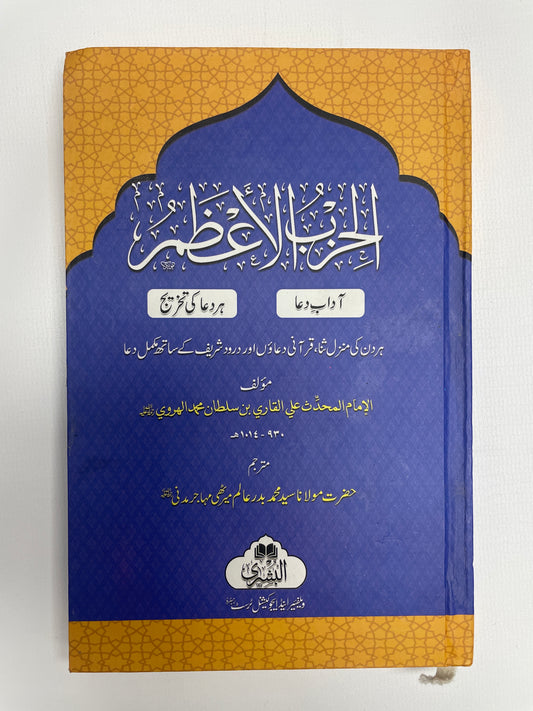 الحِزبُ الأَعْظَمُ
آدابِ دعا
ہر دعا کی تخریج
ہر دن کی منزل ثنا، قرآنی دعاؤں اور درود شریف کے ساتھ مکمل دعا
مؤلف
الإمام المحدِّث علي القاري بن سلطان محمد الهروي
٩٣٠ - ١٠١٤ھ
مترجم
حضرت مولانا سید محمد بدر عالم میرٹھی مہاجر مدنی
البشریٰ
ویلفیئر اینڈ ایجوکیشنل ٹرسٹ